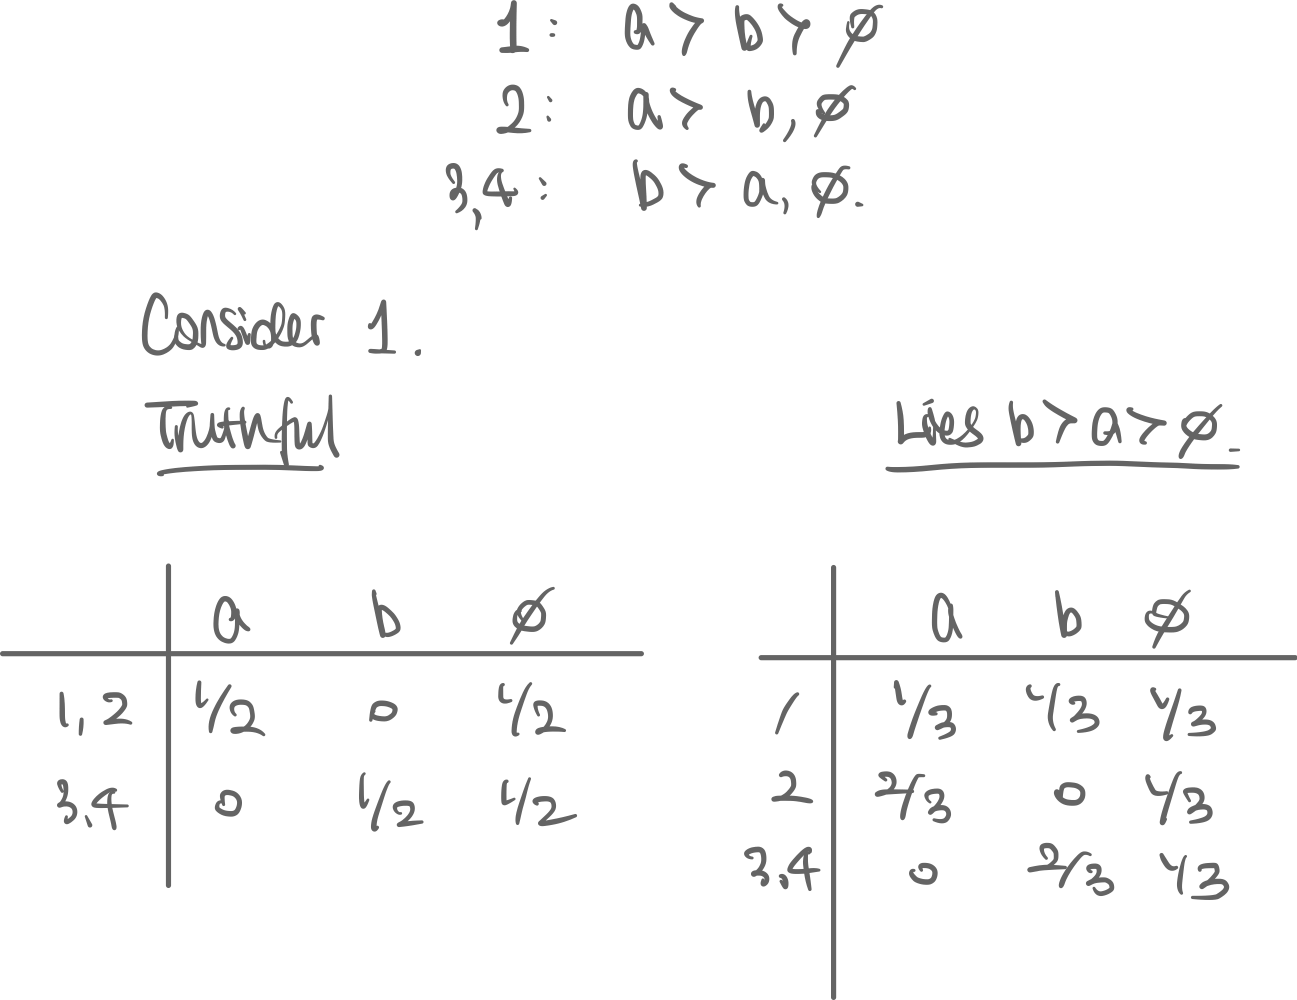 1: a > b > ∅
2: a > b, ∅
3,4: b > a, ∅.
Consider 1.
Truthful
Lies b > a > ∅.
a b ∅
1,2 1/2 0 1/2
3,4 0 1/2 1/2
a b ∅
1 1/3 1/3 1/3
2 2/3 0 1/3
3,4 0 2/3 1/3